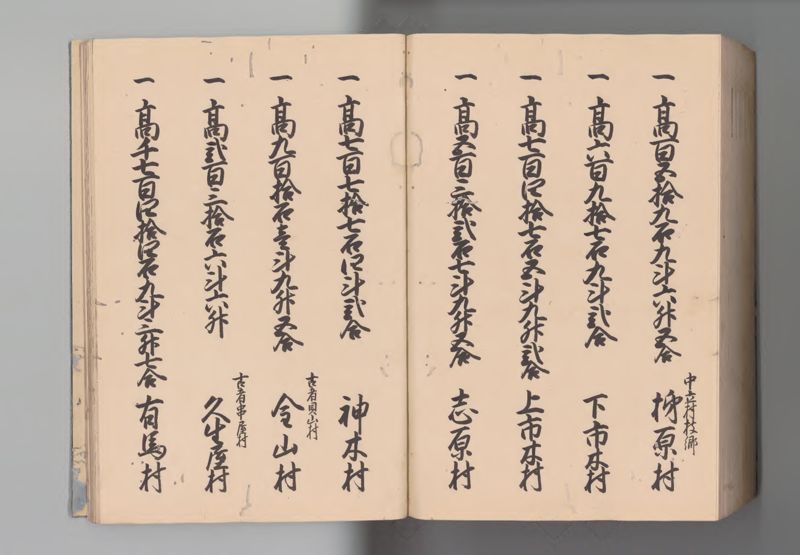 一 高百五拾九石九斗六升五合
中立村枝郷
柳原村
一 高六百九拾七石九斗弐合 下市木村
一 高七百四拾七石五斗九升弐合 上市木村
一 高五百三拾弐石七斗九升五合 志原村
一 高七百七拾七石四斗弐合 神木村
一 高九百拾石壱斗九升五合
古者貝山村
金山村
一 高弐百三拾石六斗六升
古者串屋村
久生屋村
一 高千七百四拾四石九斗三升七合 有馬村